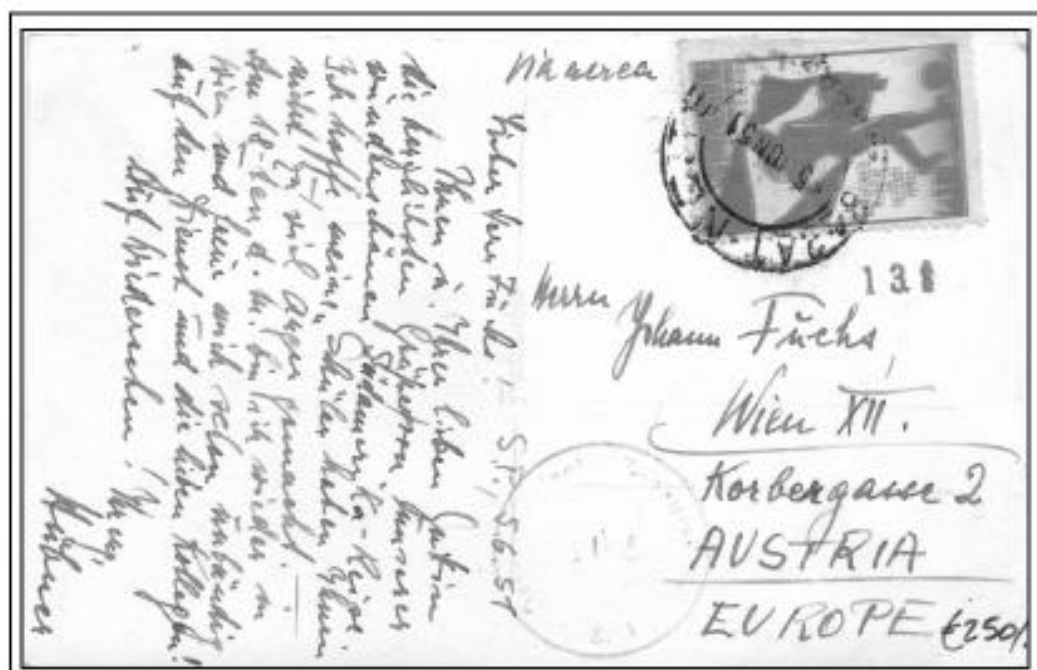 Via aerea
S. P., 5.6.51
Lieber Herr Fuchs!
Ihnen u. Ihrer lieben Gattin
die herzlichsten Grüße von unserer
wunderschönen Südamerika-Reise
Ich hoffe meine Schüler haben Ihnen
nicht zu viel Ärger gemacht.
Am 12-ten d. M. bin ich wieder in
Wien und freue mich schon unbändig
auf den Dienst und die lieben Kollegen!
Auf Wiedersehen!
Ihr
Herrn
Johann Fuchs,
Wien XII.
Korbergasse 2
AUSTRIA
EUROPE
138
€250/.